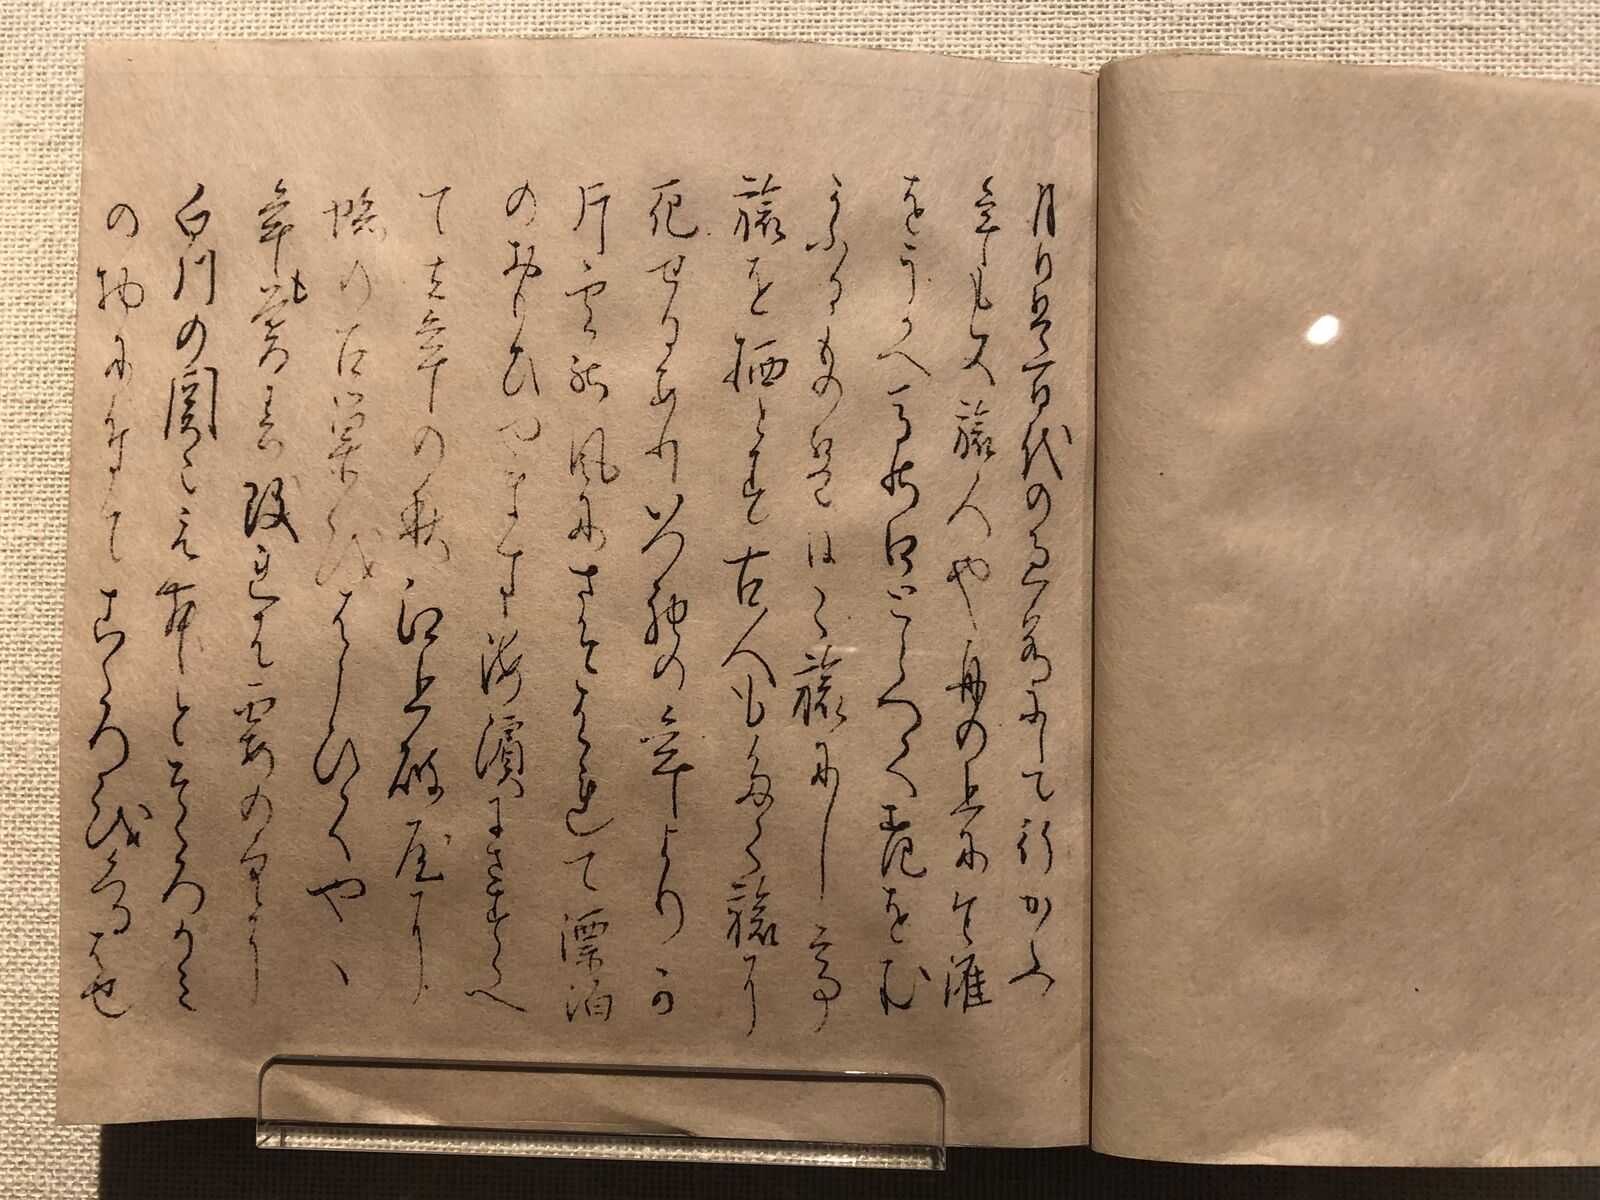 月日は百代の過客にして行かふ
年も又旅人や舟の上に生涯
をうかへ馬の口とらへて老をむ
かふるものは日〻旅にして
旅を栖とす古人も多く旅に
死せるありいつれの年よりか
片雲の風にさそはれて漂泊
のおもひやます海濱にさすらへ
て去年の秋江上破屋に
蛛の古巣をはらひてやゝ
年も暮春改れは霞の空に
白川の関こえむとそゝろかみ
の物につきてこゝろをくるはせ